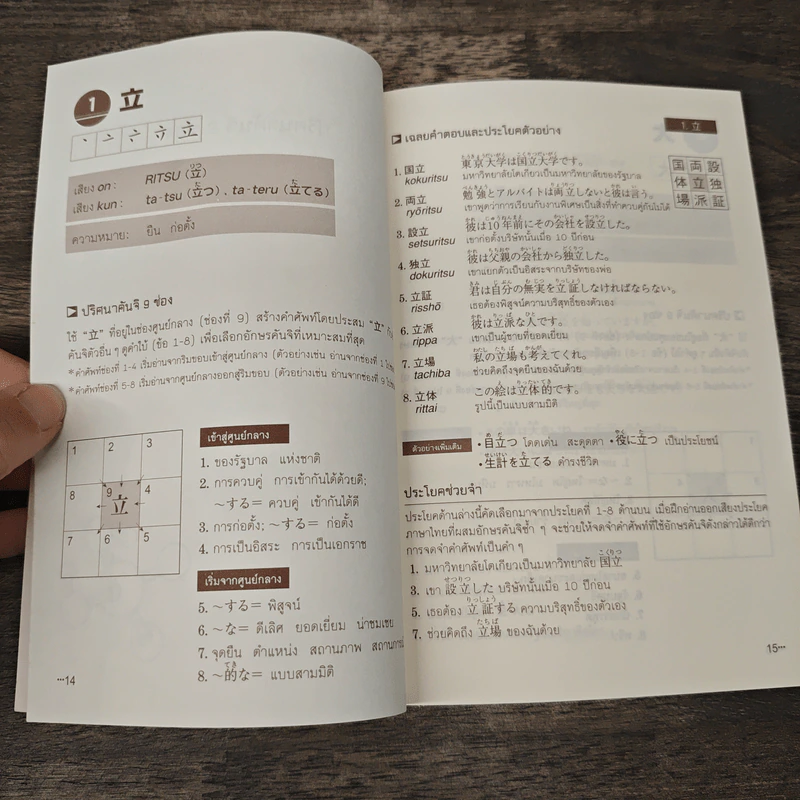 1 立
立
เสียง on : RITSU (立)
เสียง kun : ta-tsu (立つ)、ta-teru (立てる)
ความหมาย: ยืน ก่อตั้ง
ปริศนาคันจิ 9 ช่อง
ใช้ "立" ที่อยู่ในช่องศูนย์กลาง (ช่องที่ 9) สร้างคำศัพท์โดยประสม "立" กับ
คันจิตัวอื่น ๆ ดูคำใบ้ (ข้อ 1-8) เพื่อเลือกอักษรคันจิที่เหมาะสมที่สุด
*คำศัพท์ช่องที่ 1-4 เริ่มอ่านจากริมขอบเข้าสู่ศูนย์กลาง (ตัวอย่างเช่น อ่านจากช่องที่ 1
*คำศัพท์ช่องที่ 5-8 เริ่มอ่านจากศูนย์กลางออกสู่ริมขอบ (ตัวอย่างเช่น อ่านจากช่องที่ 9
1 2 3
8 9 立 4
7 6 5
เข้าสู่ศูนย์กลาง
1. ของรัฐบาล แห่งชาติ
2. การควบคู่ การเข้ากันได้ด้วยดี;
～する= ควบคู่ เข้ากันได้ดี
3. การก่อตั้ง; ～する= ก่อตั้ง
4. การเป็นอิสระ การเป็นเอกราช
เริ่มจากศูนย์กลาง
5. ～する= พิสูจน์
6. ～な= ดีเลิศ ยอดเยี่ยม น่าชมเชย
7. จุดยืน ตำแหน่ง สถานภาพ
8. ～的な= แบบสามมิติ
14
1. 立
เฉลยคำตอบและประโยคตัวอย่าง
国両設
体立独
場派証
1. 国立 東京大学は国立大学です。
kokuritsu มหาวิทยาลัยโตเกียวเป็นมหาวิทยาลัยของรัฐบาล
2. 両立 勉強とアルバイトは両立しないと彼は言う。
ryōritsu เขาพูดว่าการเรียนกับงานพิเศษเป็นสิ่งที่ทำควบคู่กันไม่ได้
3. 設立 彼は10年前にその会社を設立した。
setsuritsu เขาก่อตั้งบริษัทนั้นเมื่อ 10 ปีก่อน
4. 独立 彼は父親の会社から独立した。
dokuritsu เขาแยกตัวเป็นอิสระจากบริษัทของพ่อ
5. 立証 君は自分の無実を立証しなければならない。
risshō เธอต้องพิสูจน์ความบริสุทธิ์ของตัวเอง
6. 立派 彼は立派な人です。
rippa เขาเป็นผู้ชายที่ยอดเยี่ยม
7. 立場 私の立場も考えてくれ。
tachiba ช่วยคิดถึงจุดยืนของฉันด้วย
8. 立体 この絵は立体的です。
rittai รูปนี้เป็นแบบสามมิติ
ตัวอย่างเพิ่มเติม • 目立つ โดดเด่น สะดุดตา • 役に立つ เป็นประโยชน์
• 生計を立てる ดำรงชีวิต
ประโยคช่วยจำ
ประโยคด้านล่างนี้คัดเลือกมาจากประโยคที่ 1-8 ด้านบน เมื่อฝึกอ่านออกเสียงประโยค
ภาษาไทยที่ผสมอักษรคันจิซ้ำ ๆ จะช่วยให้จดจำคำศัพท์ที่ใช้อักษรคันจิดังกล่าวได้ดีกว่า
การจดจำคำศัพท์เป็นคำ ๆ
1. มหาวิทยาลัยโตเกียวเป็นมหาวิทยาลัย 国立
3. เขา 設立した บริษัทนั้นเมื่อ 10 ปีก่อน
5. เธอต้อง 立証する ความบริสุทธิ์ของตัวเอง
7. ช่วยคิดถึง 立場 ของฉันด้วย
15